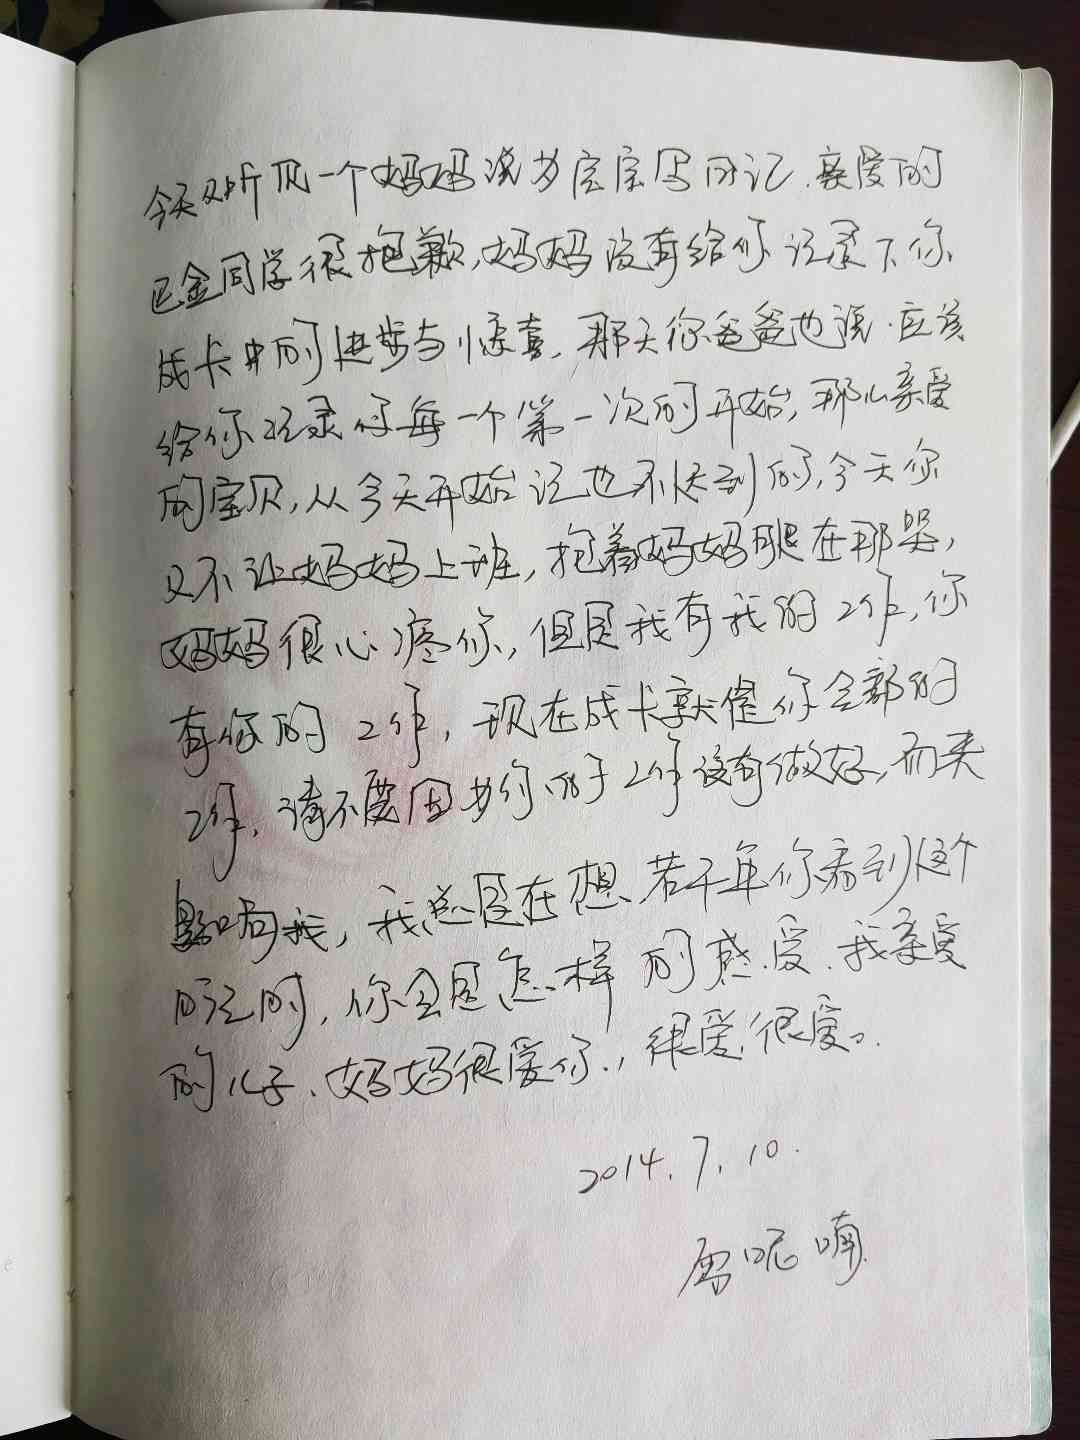 今天又听见一个妈妈说为宝宝写日记.亲爱的
金同学很抱歉,妈妈没有给你记录下你
成长中的进步与惊喜,那天你爸爸也说.应该
给你记录你每一个第一次的开始,那么亲爱
的宝贝,从今天开始记也不迟到的,今天你
又不让妈妈上班,抱着妈妈腿在那哭,
妈妈很心疼你,但是我有我的工作,你
有你的工作,现在成长就是你全部的
工作,请不要因为你的工作没有做好,而来
影响我,我总是在想、若干年你看到这个
日记时,你会是怎样的感受.我亲爱
的儿子、妈妈很爱你.,很爱,很爱。
2014.7.10.
呢喃